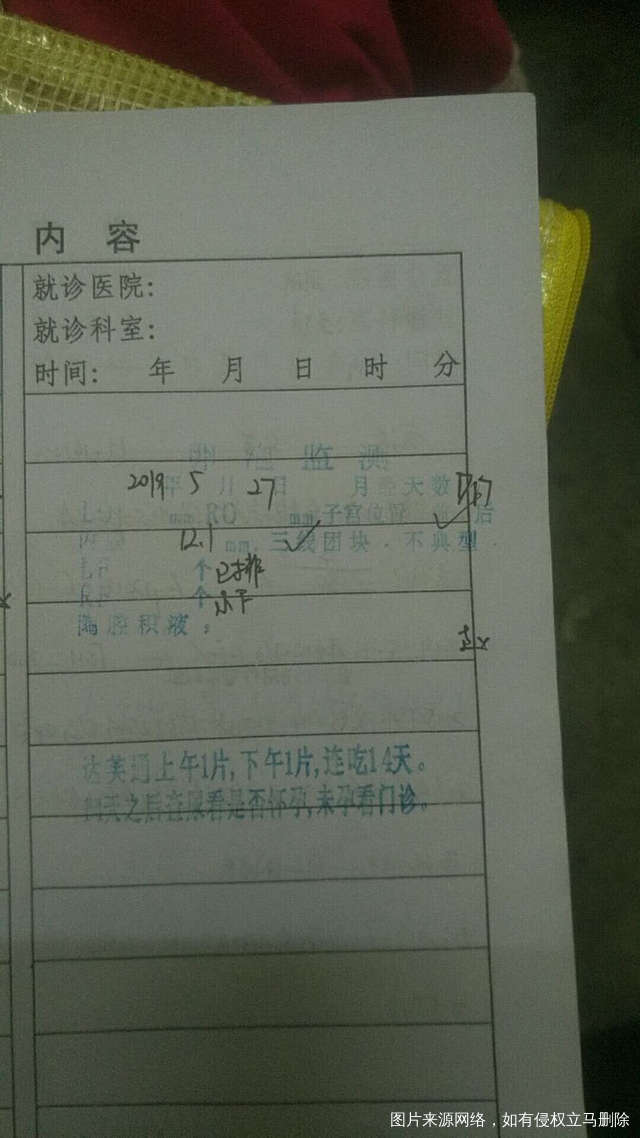 内 容
就诊医院:
就诊科室:
时间: 年 月 日 时 分
卵泡监测
2019年 5月 27日 月经大数 D17
LO mm.RO mm.子宫位 后
内膜 12.1 mm.三线团块.不典型.
LF 个 已排
RF 个 小于
陶腔积液:
达芙通上午1片,下午1片,连吃14天。
四天之后查尿看是否怀孕,未孕看门诊。
图片来源网络，如有侵权立马删除